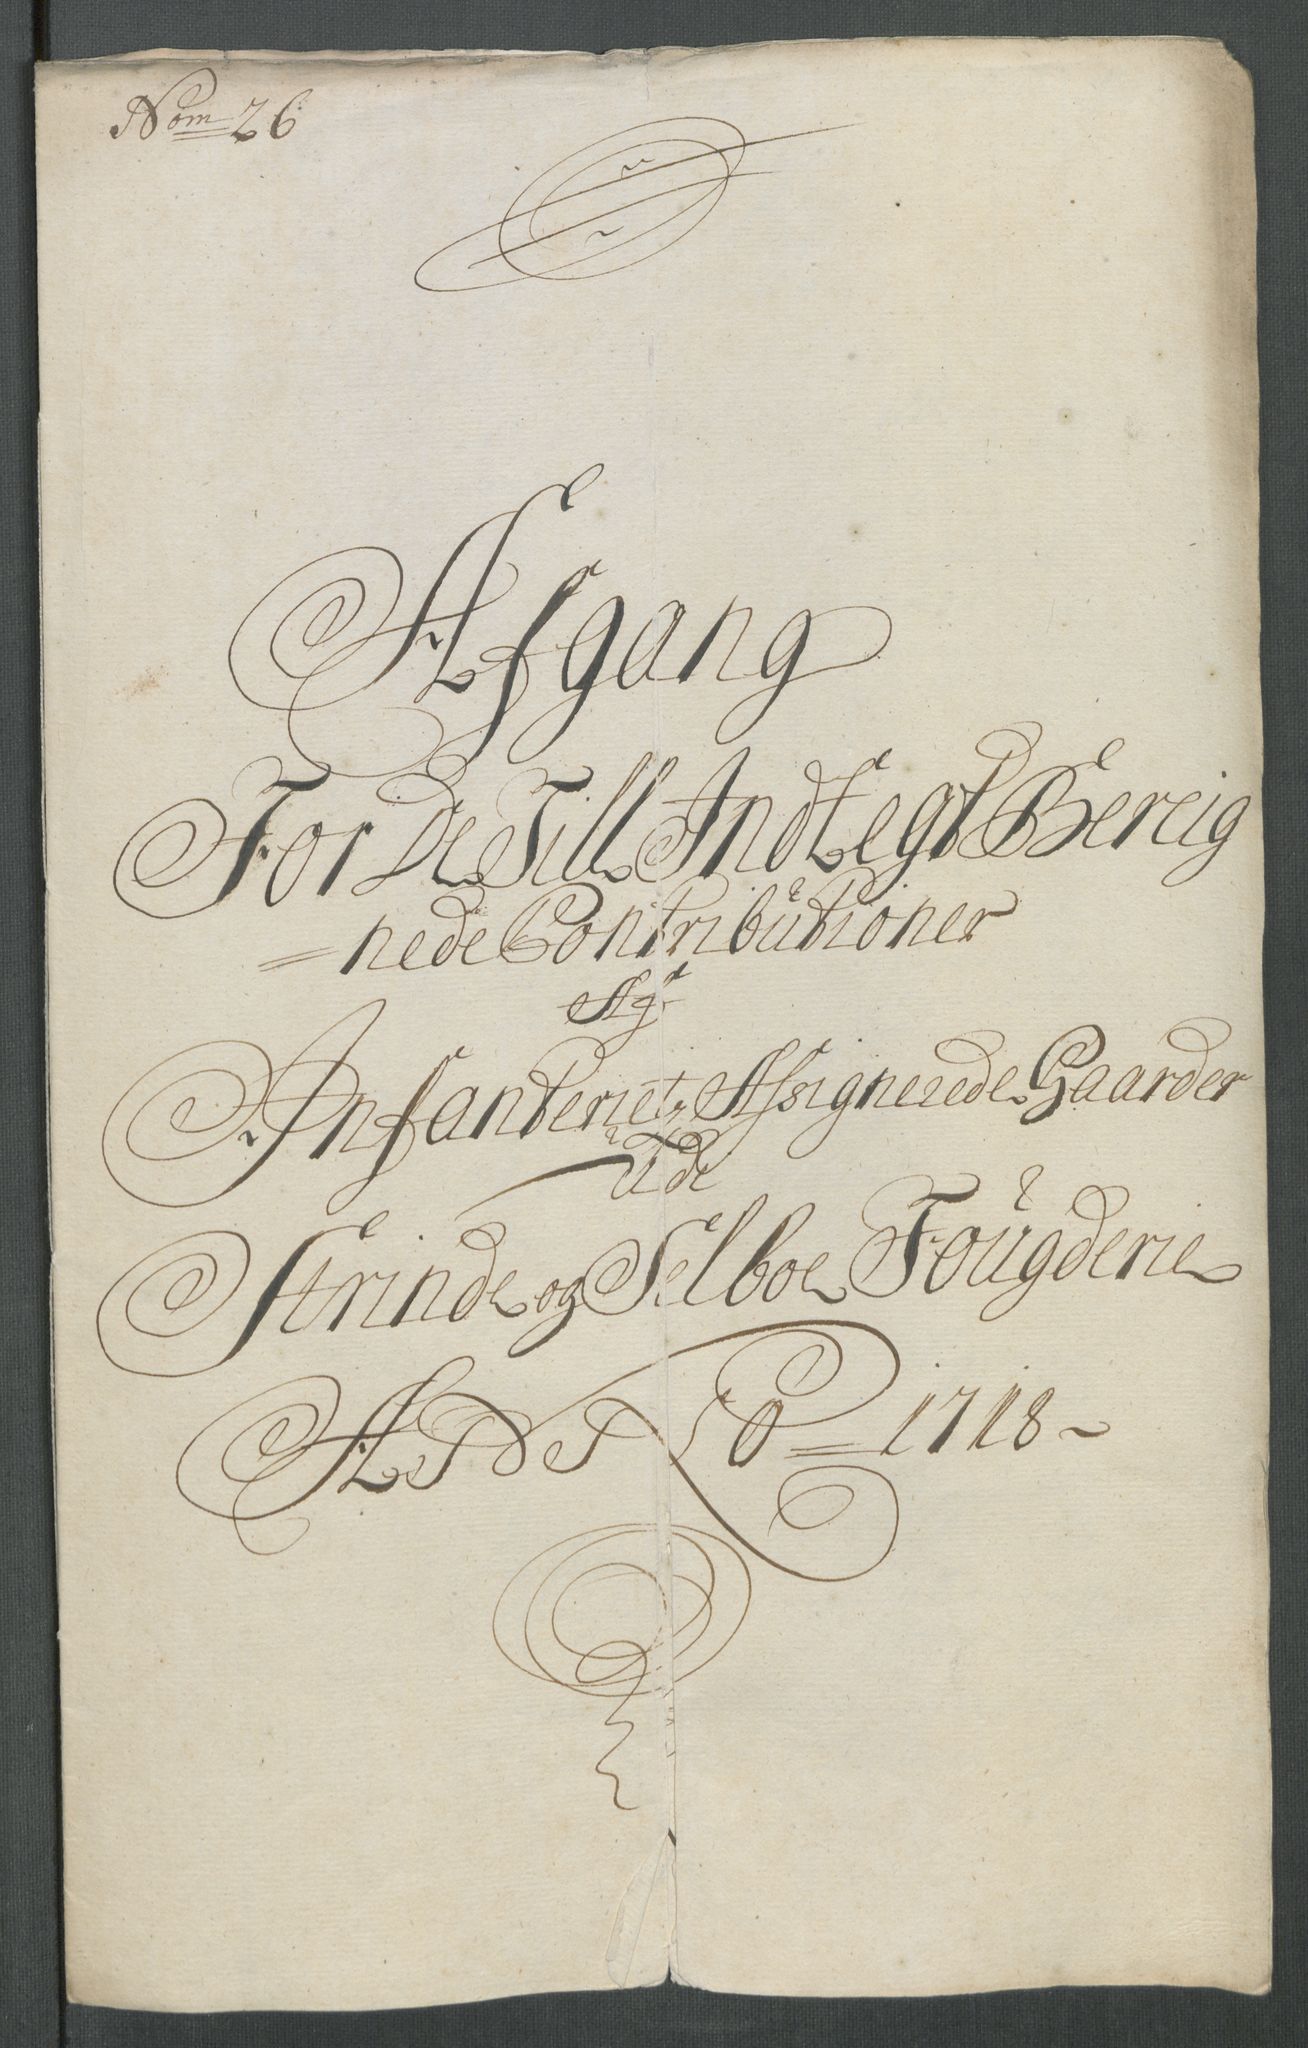 Nom 26
Afgang
For De Till Indtegt Bereig
=nede Contributioner
Af
Infanteriets Assignerede Gaarder
Udi
Strinde og Selboe Fougderie
1718